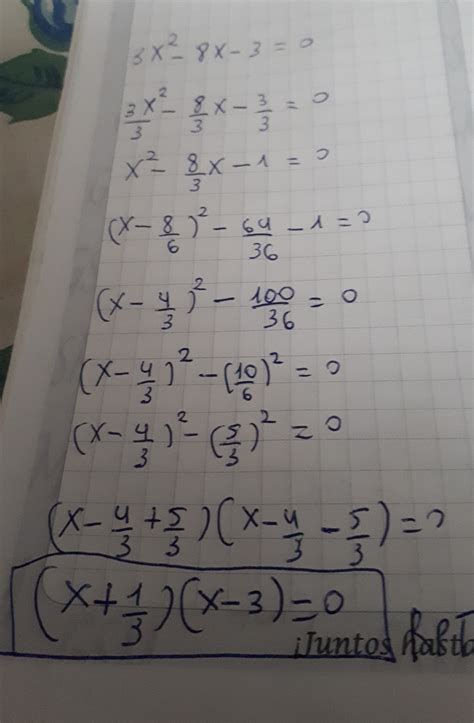 3x² - 8x - 3 = 0
3x²/3 - 8/3 x - 3/3 = 0
x² - 8/3 x - 1 = 0
(x - 8/6)² - 64/36 - 1 = 0
(x - 4/3)² - 100/36 = 0
(x - 4/3)² - (10/6)² = 0
(x - 4/3)² - (5/3)² = 0
(x - 4/3 + 5/3)(x - 4/3 - 5/3) = 0
(x + 1/3)(x - 3) = 0
¡Juntos